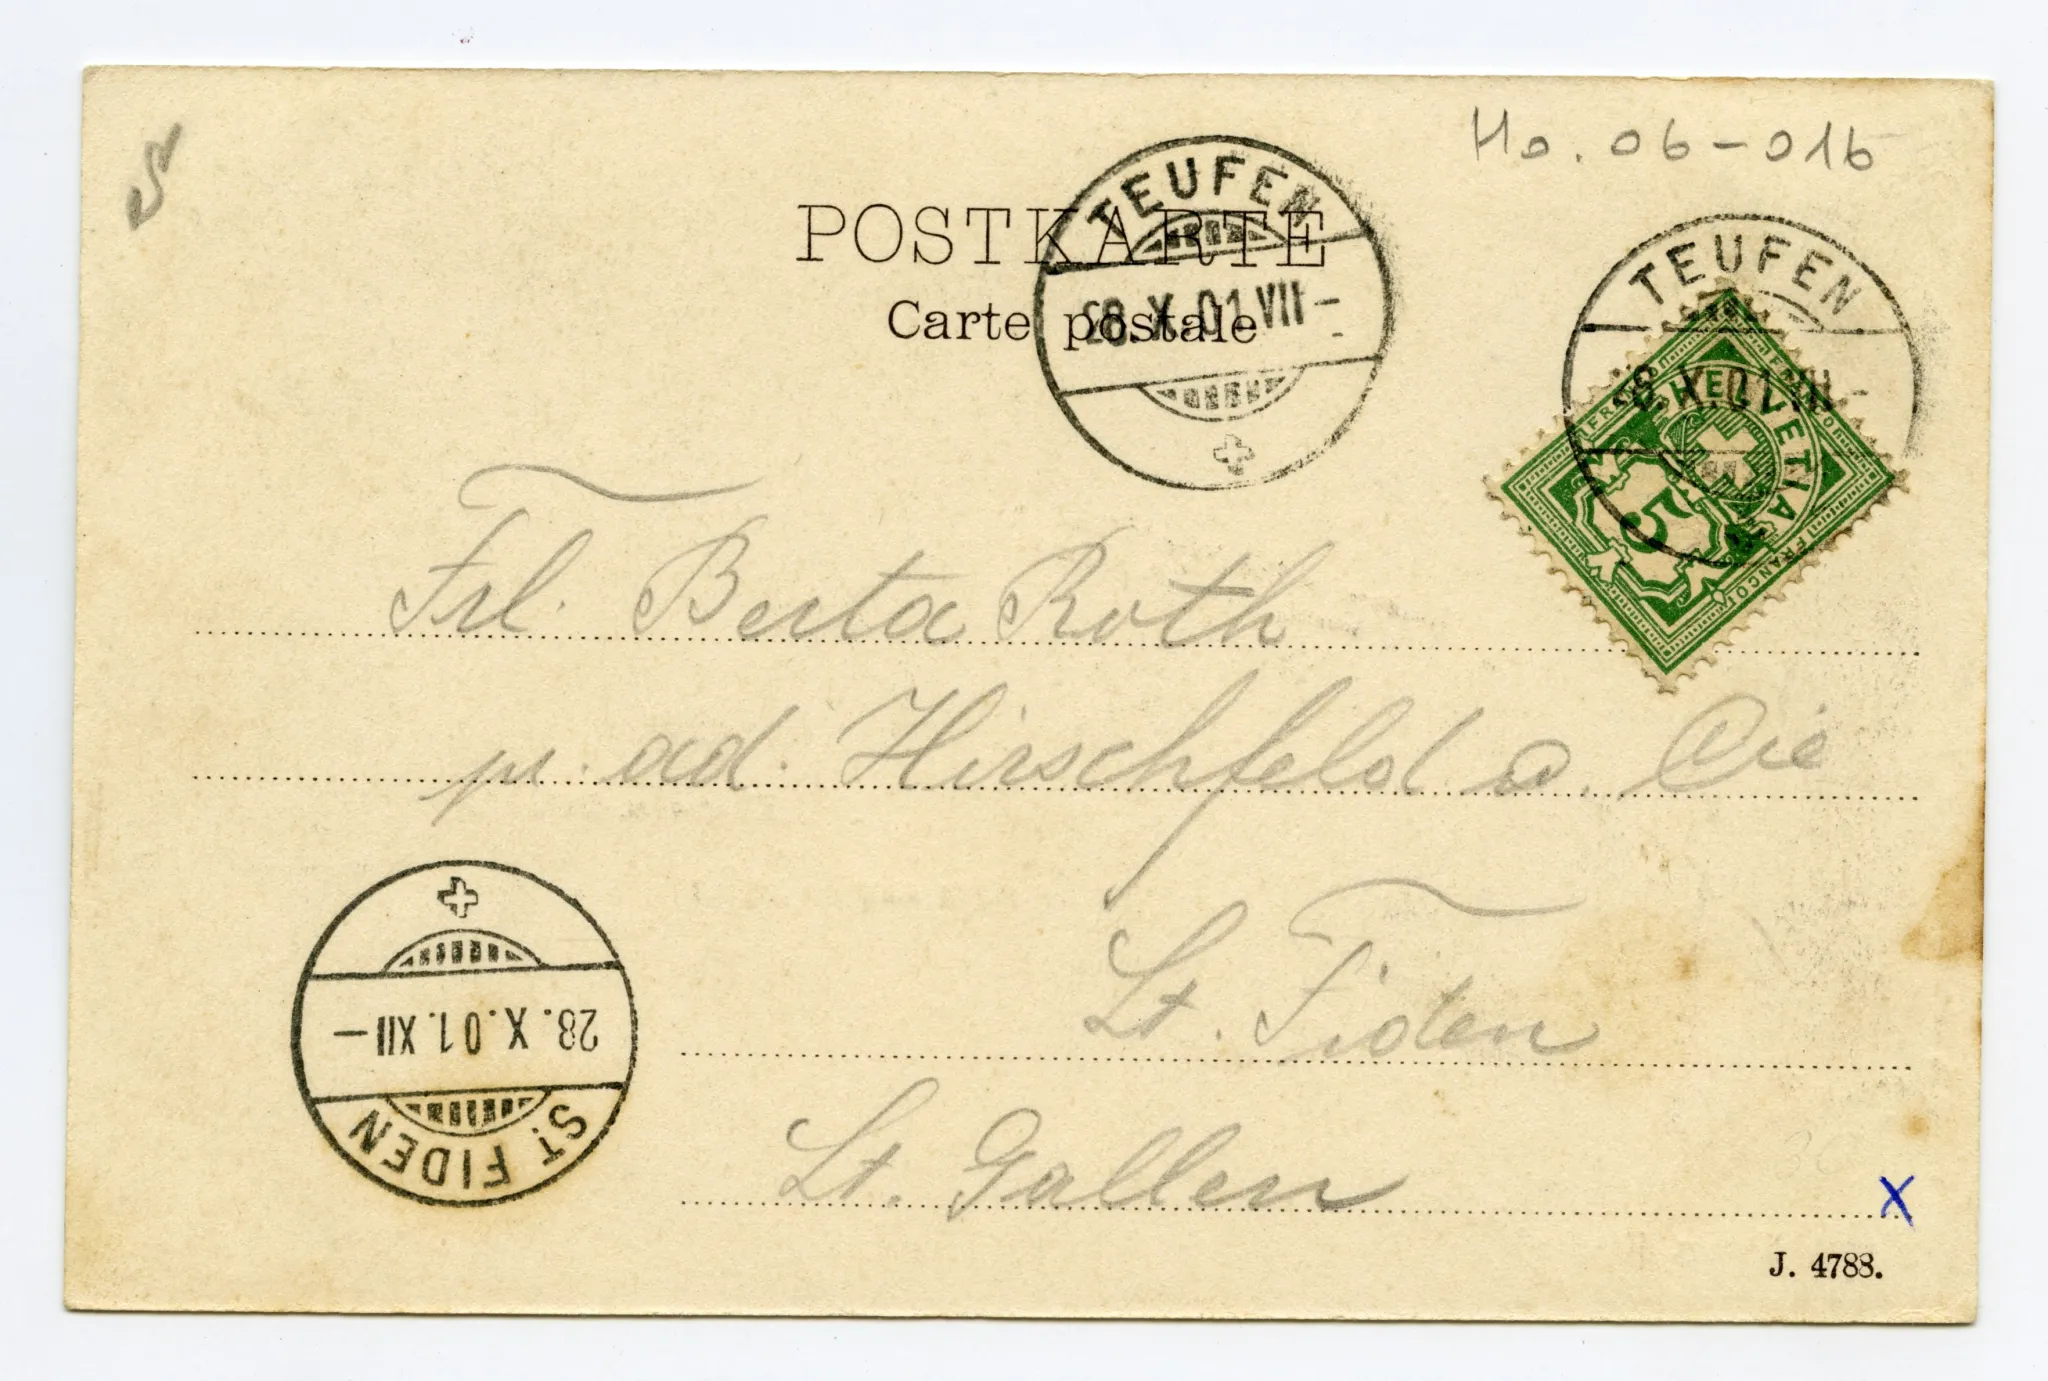 Ho. 06-016
POSTKARTE
Carte postale
TEUFEN
28.X.01.VII–
TEUFEN
28.X.01.VII–
FRANCO HELVETIA FRANCO
5
Frl. Berta Roth
p. ad. Hirschfeld & Cie
St. Fiden
St. Gallen
ST. FIDEN
28.X.01.XII–
X
J. 4788.